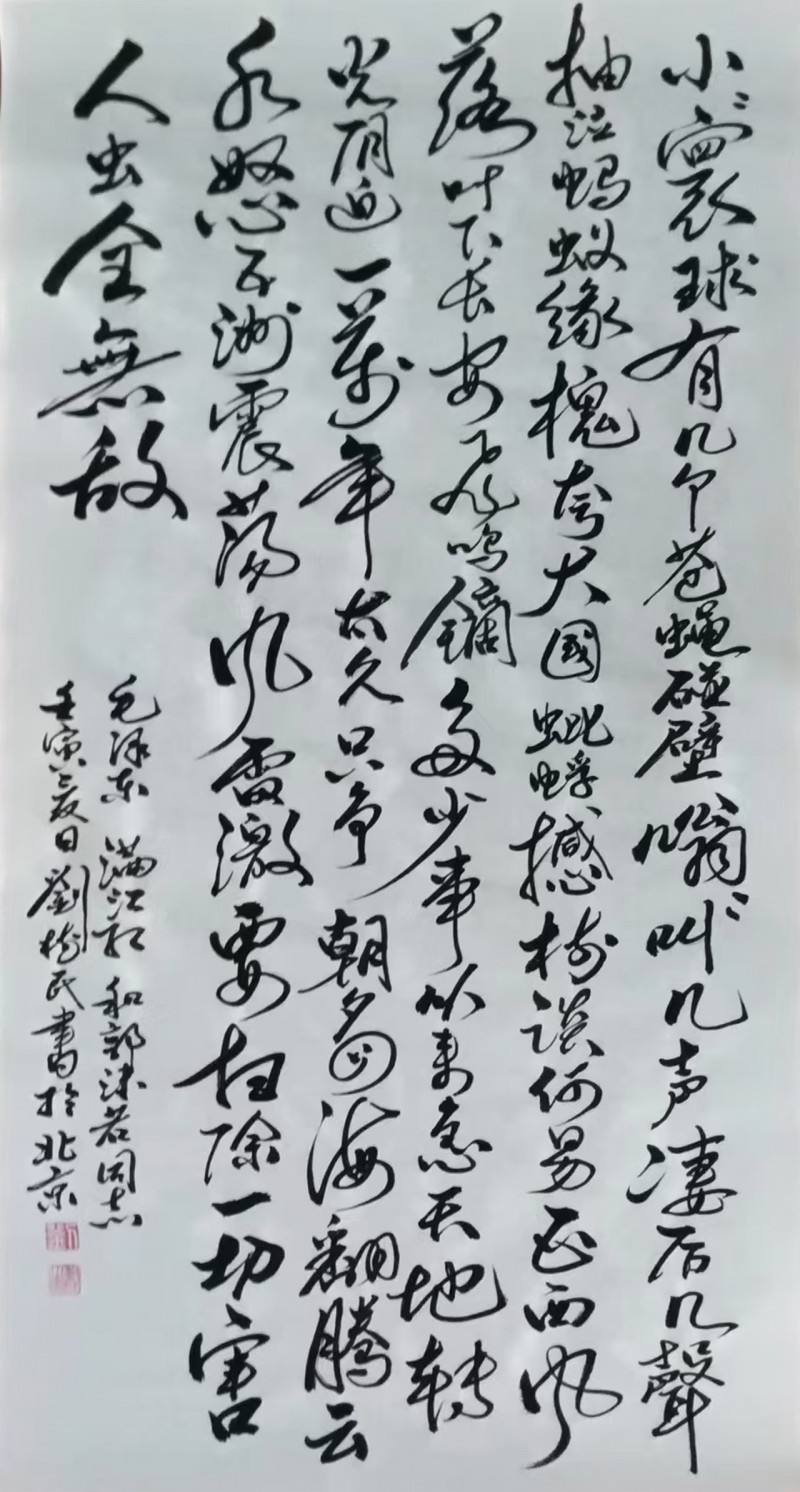 小〻寰球有几个苍蝇碰壁嗡〻叫几声凄厉几聲
抽泣蚂蚁缘槐夸大国蚍蜉撼树谈何易正西风
落叶下长安飞鸣镝多少事从来急天地转
光阴迫一萬年太久只争朝夕四海翻腾云
水怒五洲震荡风雷激要扫除一切害
人虫全無敌
毛泽东 满江红 和郭沫若同志
壬寅夏日劉树民書於北京